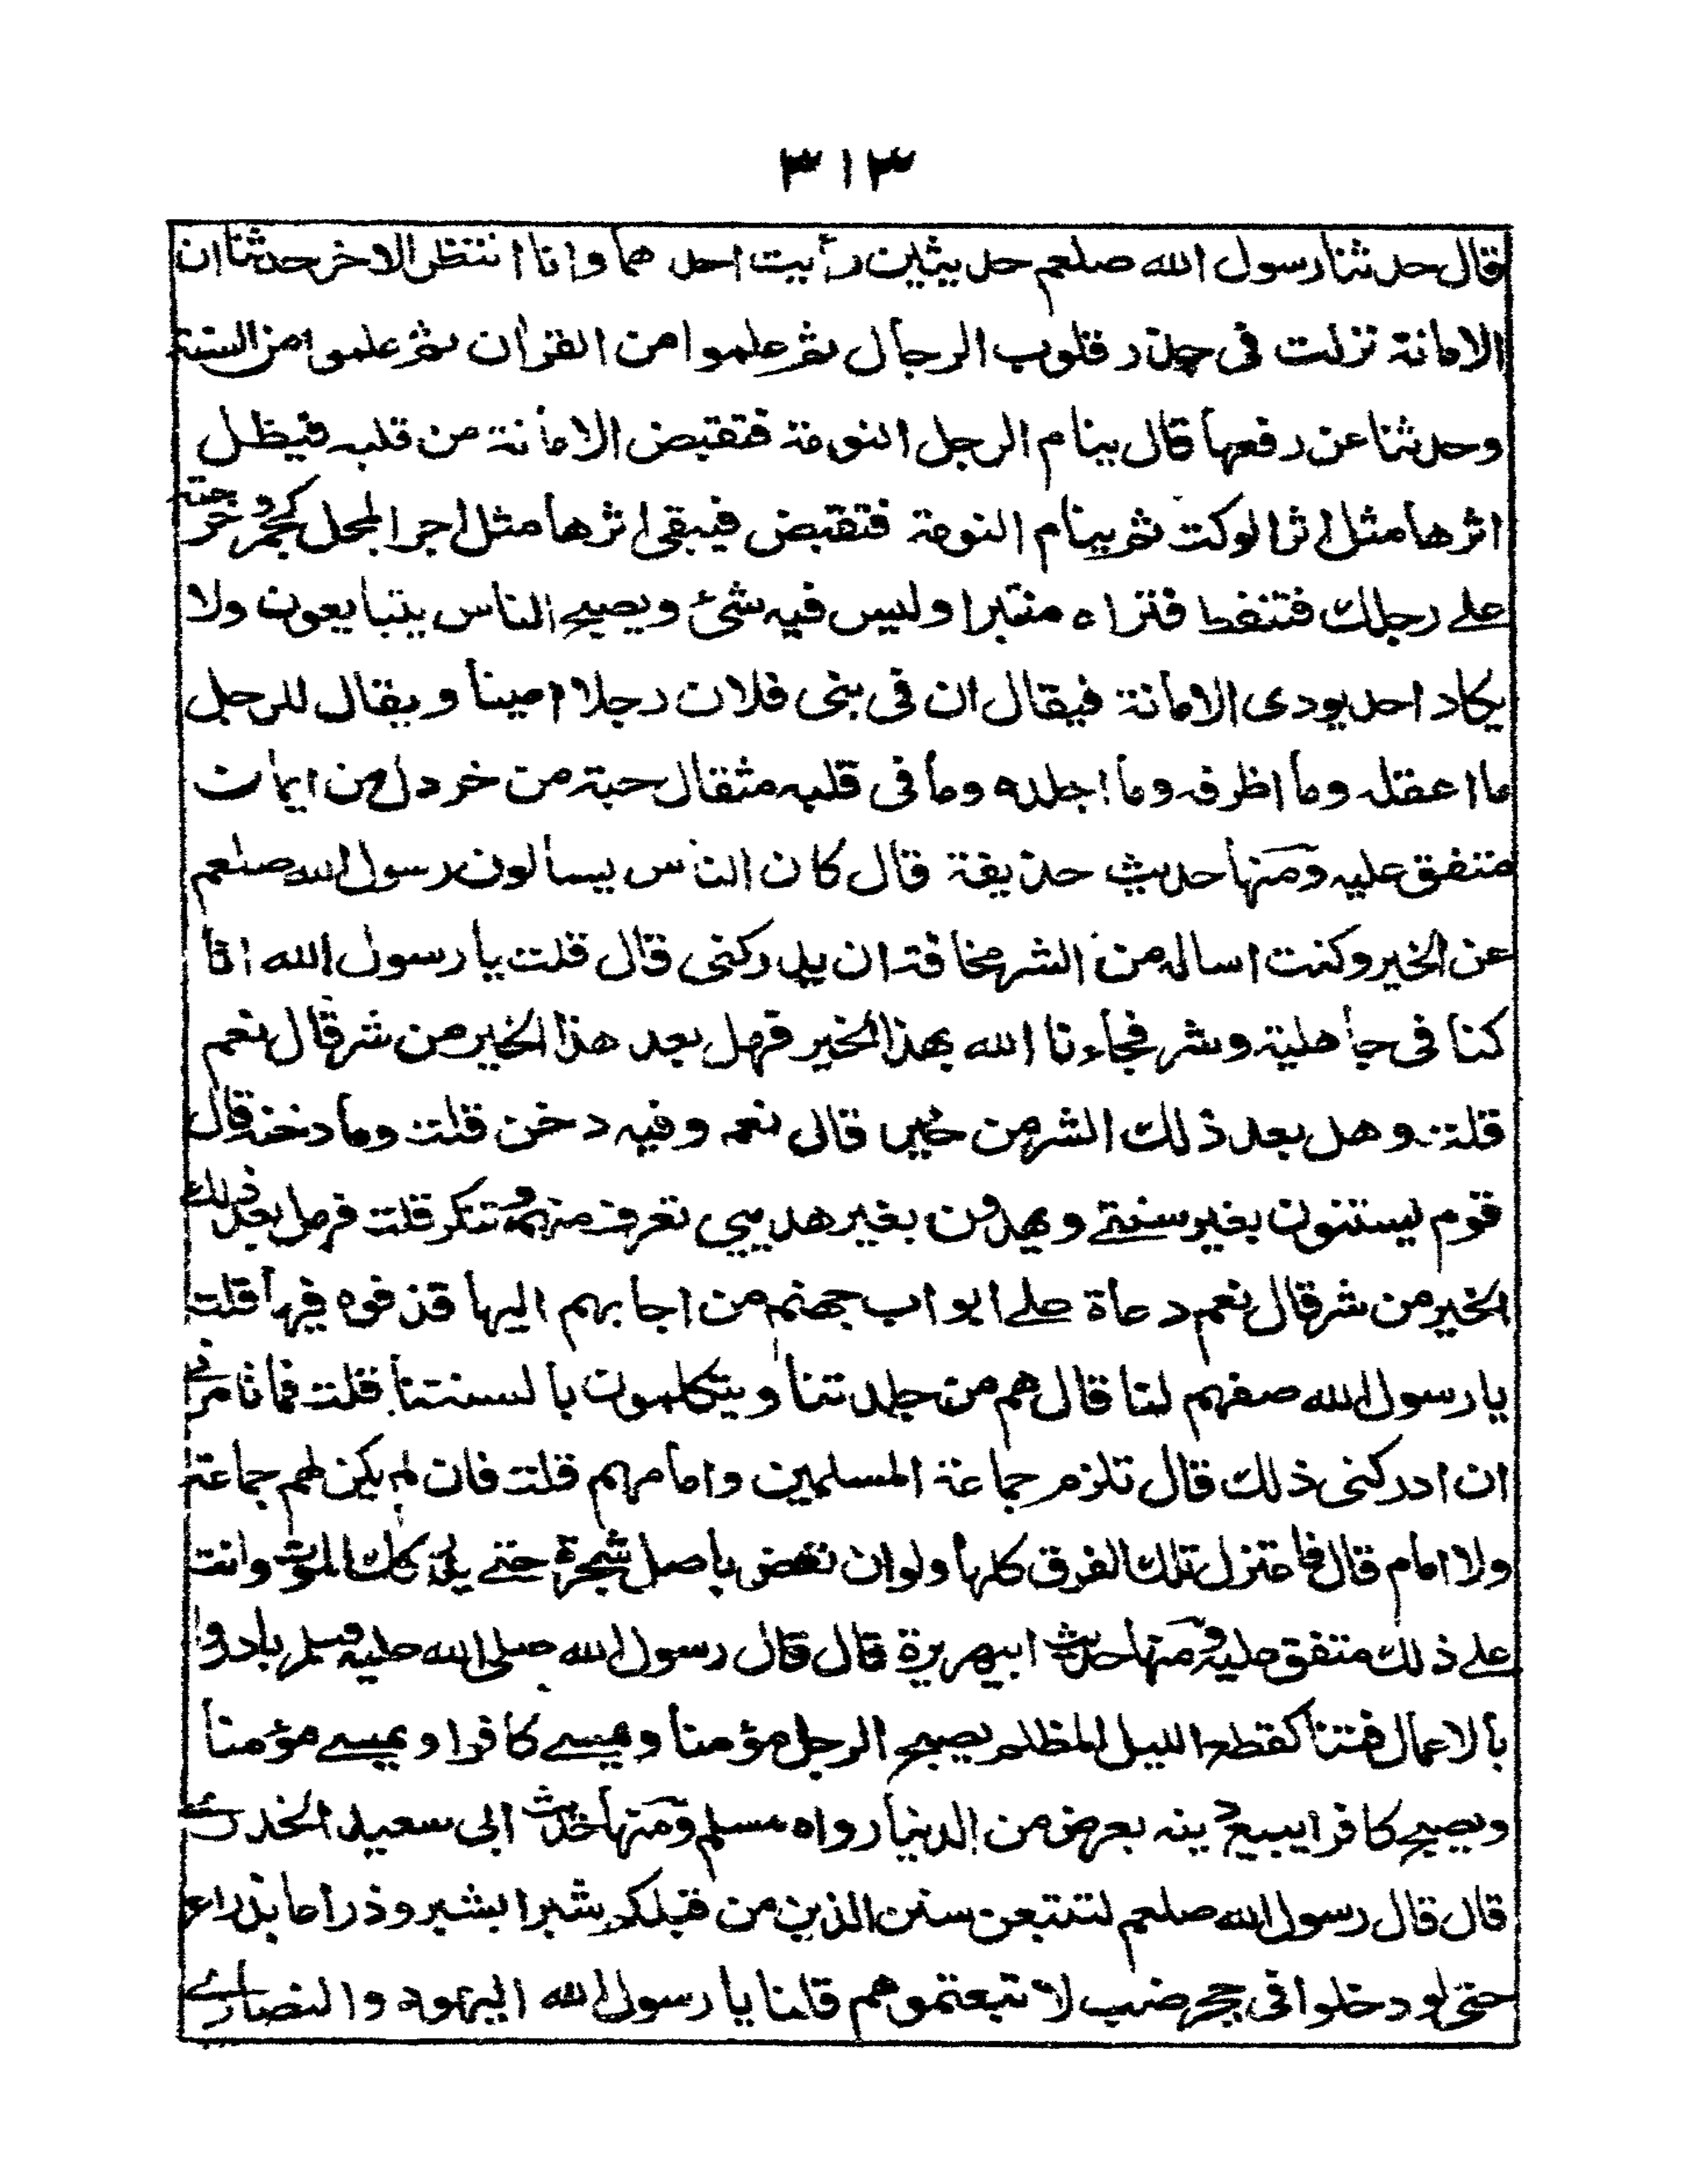 ٣١٣
قال حدثنا رسول الله صلعم حديثين رأيت احدهما وانا انتظر الاخر حدثنا ان
الامانة نزلت في جذر قلوب الرجال ثم علموا من القرآن ثم علموا من السنة
وحدثنا عن رفعها قال ينام الرجل النومة فتقبض الامانة من قلبه فيظل
اثرها مثل اثر الوكت ثم ينام النومة فتقبض فيبقى اثرها مثل اجر المجل كجمر دحرجته
على رجلك فتنفط فتراه منتبرا وليس فيه شئ ويصبح الناس يتبايعون ولا
يكاد احد يودى الامانة فيقال ان في بنى فلان رجلا امينا ويقال للرجل
ما اعقله وما اظرفه وما اجلده وما فى قلبه مثقال حبة من خردل من ايمان
متفق عليه ومنها حديث حذيفة قال كان الناس يسالون رسول الله صلعم
عن الخير وكنت اساله من الشر مخافة ان يدركنى قال قلت يا رسول الله انا
كنا فى جاهلية وشر فجاءنا الله بهذا الخير فهل بعد هذا الخير من شر قال نعم
قلت وهل بعد ذلك الشر من خير قال نعم وفيه دخن قلت وما دخنه قال
قوم يستنون بغير سنتي ويهدون بغير هديي تعرف منهم وتنكر قلت فهل بعد ذلك
الخير من شر قال نعم دعاة على ابواب جهنم من اجابهم اليها قذفوه فيها قلت
يا رسول الله صفهم لنا قال هم من جلدتنا ويتكلمون بالسنتنا قلت فما تامرني
ان ادركنى ذلك قال تلزم جماعة المسلمين وامامهم قلت فان لم يكن لهم جماعة
ولا امام قال فاعتزل تلك الفرق كلها ولو ان تعض باصل شجرة حتى يدركك الموت وانت
على ذلك متفق عليه ومنها حديث ابيهريرة قال قال رسول الله صلى الله عليه وسلم بادروا
بالاعمال فتنا كقطع الليل المظلم يصبح الرجل مؤمنا ويمسي كافرا ويمسي مؤمنا
ويصبح كافرا يبيع دينه بعرض من الدنيا رواه مسلم ومنها حديث ابى سعيد الخدري
قال قال رسول الله صلعم لتتبعن سنن الذين من قبلكم شبرا بشبر وذراعا بذراع
حتى لو دخلوا فى جحر ضب لاتبعتموهم قلنا يا رسول الله اليهود والنصارى